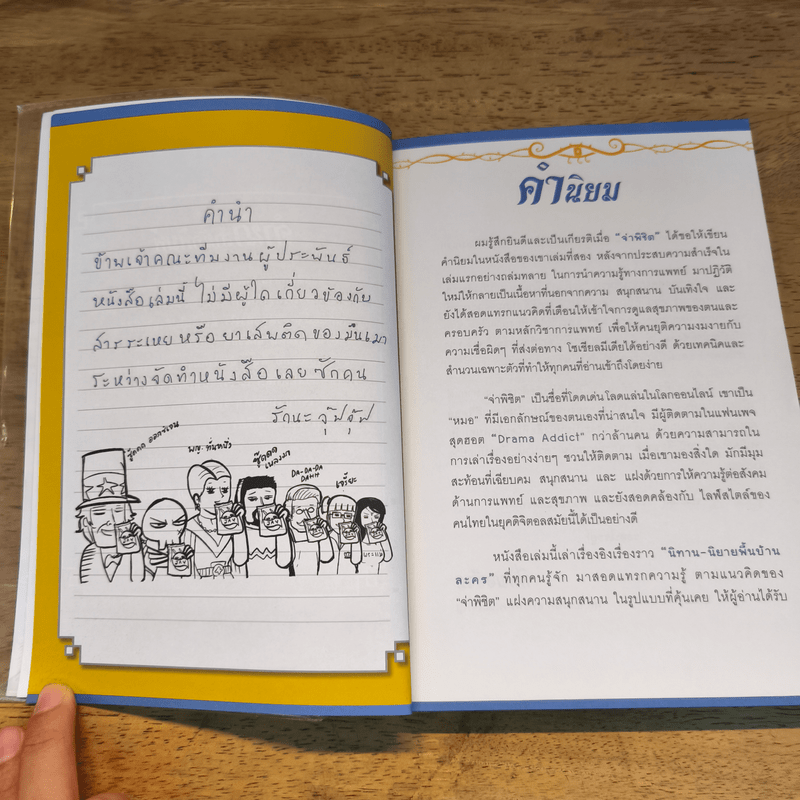 คำนำ
ข้าพเจ้าคณะทีมงานผู้ประพันธ์
หนังสือเล่มนี้ ไม่มีผู้ใดเกี่ยวข้องกับ
สารระเหยหรือยาเสพติดของมึนเมา
ระหว่างจัดทำหนังสือเลยซักคน
รักนะ จุ๊ฟจุ๊ฟ
DA-DA-DA
DAHH
คำนิยม
ผมรู้สึกยินดีและเป็นเกียรติเมื่อ "จ่าพิชิต" ได้ขอให้เขียน
คำนิยมในหนังสือของเขาเล่มที่สอง หลังจากประสบความสำเร็จใน
เล่มแรกอย่างถล่มทลาย ในการนำความรู้ทางการแพทย์ มาปฏิวัติ
ใหม่ให้กลายเป็นเนื้อหาที่นอกจากความ สนุกสนาน บันเทิงใจ และ
ยังได้สอดแทรกแนวคิดที่เตือนให้เข้าใจการดูแลสุขภาพของตนและ
ครอบครัว ตามหลักวิชาการแพทย์ เพื่อให้คนยุติความงมงายกับ
ความเชื่อผิดๆ ที่ส่งต่อทาง โซเชียลมีเดียได้อย่างดี ด้วยเทคนิคและ
สำนวนเฉพาะตัวที่ทำให้ทุกคนที่อ่านเข้าถึงโดยง่าย
"จ่าพิชิต" เป็นชื่อที่โดดเด่นโลดแล่นในโลกออนไลน์ เขาเป็น
"หมอ" ที่มีเอกลักษณ์ของตนเองที่น่าสนใจ มีผู้ติดตามในแฟนเพจ
สุดฮอต "Drama Addict" กว่าล้านคน ด้วยความสามารถใน
การเล่าเรื่องอย่างง่ายๆ ชวนให้ติดตาม เมื่อเขามองสิ่งใด มักมีมุม
สะท้อนที่เฉียบคม สนุกสนาน และ แฝงด้วยการให้ความรู้ต่อสังคม
ด้านการแพทย์ และสุขภาพ และยังสอดคล้องกับ ไลฟ์สไตล์ของ
คนไทยในยุคดิจิตอลสมัยนี้ได้เป็นอย่างดี
หนังสือเล่มนี้เล่าเรื่องอิงเรื่องราว "นิทาน-นิยายพื้นบ้าน
ละคร" ที่ทุกคนรู้จัก มาสอดแทรกความรู้ ตามแนวคิดของ
"จ่าพิชิต" แฝงความสนุกสนาน ในรูปแบบที่คุ้นเคย ให้ผู้อ่านได้รับ